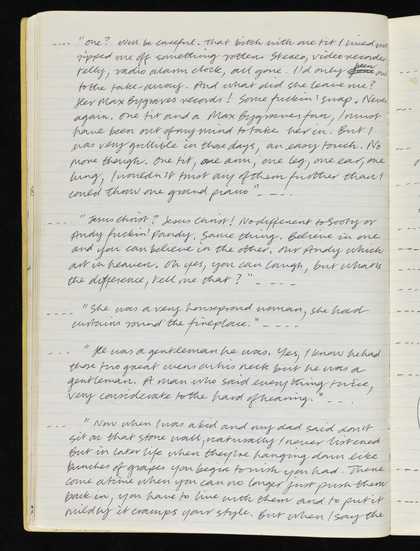 ---- "One? Well be careful. That bitch with one tit I lived with
ripped me off something rotten. Stereo, video recorder
telly, radio alarm clock, all gone. I'd only been out
to the take-away. And what did she leave me?
Her Max Bygraves records! Some fuckin' swap. Never
again. One tit and a Max Bygraves fan, I must
have been out of my mind to take her in. But I
was very gullible in those days, an easy touch. No
more though. One tit, one arm, one leg, one ear, one
lung, I wouldn't trust any of them further than I
could throw one grand piano" - ---
---- "Jesus Christ? Jesus Christ! No different to Sooty or
Andy fuckin' Pandy. Same thing. Believe in one
and you can believe in the other. Our Andy which
art in heaven. Oh yes, you can laugh, but what's
the difference, tell me that?" - ---
---- "She was a very houseproud woman, she had
curtains round the fireplace." ----
---- "He was a gentleman he was. Yes, I know he had
those two great wens on his neck but he was a
gentleman. A man who said everything twice,
very considerate to the hard of hearing." - --
---- "Now when I was a kid and my dad said don't
sit on that stone wall, naturally I never listened
but in later life when they're hanging down like
bunches of grapes you begin to wish you had. There
come a time when you can no longer just push them
back in, you have to live with them and to put it
mildly it cramps your style. But when I say the